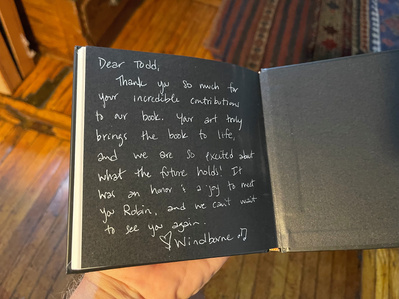 Dear Todd,
Thank you so much for
your incredible contributions
to our book. Your art truly
brings the book to life,
and we are so excited about
what the future holds! It
was an honor & a joy to meet
you Robin, and we can't wait
to see you again.
♡Windborne ♫